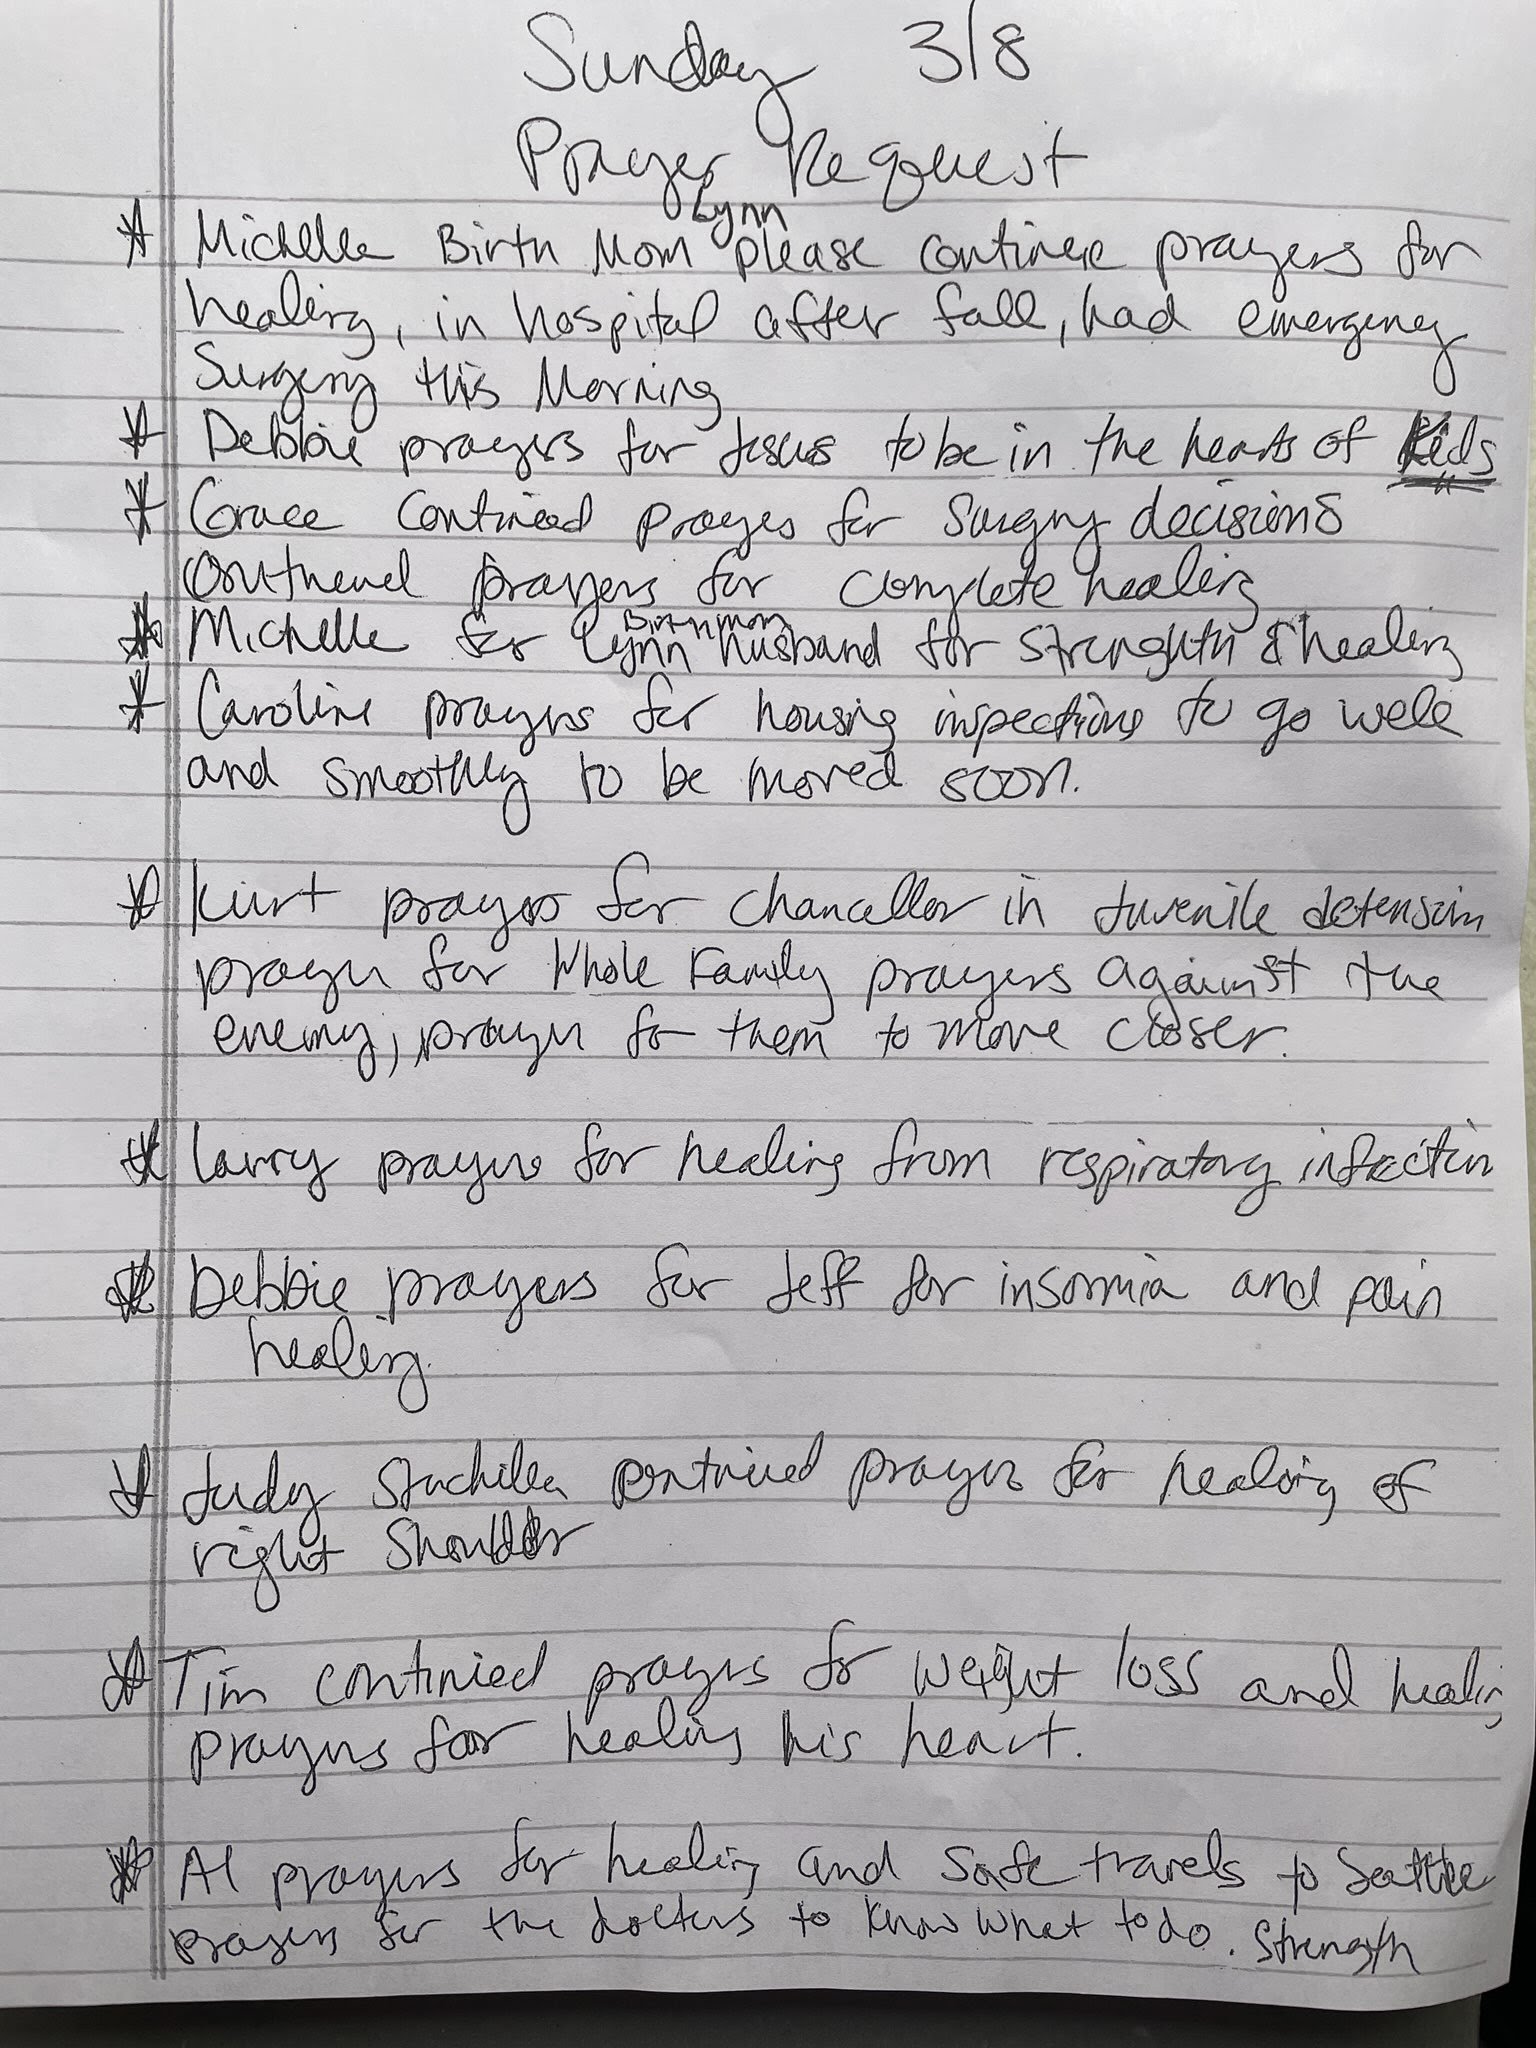 Sunday 3/8
Prayer Request
* Michelle Birth Mom Lynn please continue prayers for
healing, in hospital after fall, had emergency
Surgery this Morning
* Debbie prayers for Jesus to be in the hearts of Kids
* Grace Continued prayers for Surgery decisions
Continued prayers for complete healing
* Michelle for Lynn Birth mom husband for Strenghth & healing
* Caroline prayers for housing inspections to go well
and smoothly to be moved soon.
* Kurt prayers for Chancellor in Juvenile detension
prayer for Whole Family prayers against the
enemy, prayer for them to move closer.
* Larry prayers for healing from respiratory infection
* Debbie prayers for Jeff for insomnia and pain
healing.
* Judy continued prayers for healing of
right Shoulder
* Tim continied prayers for Weight loss and healing
prayers for healing his heart.
* Al prayers for healing and Safe travels to Seattle
prayers for the doctors to know what to do. Strength